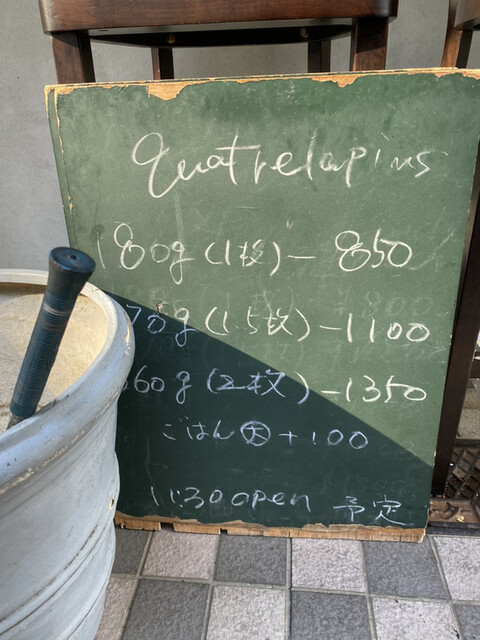 quatrelapins
180g (1枚) - 850
70g (1.5枚) - 1100
60g (2枚) - 1350
ごはん 大 + 100
11:30 open 予定